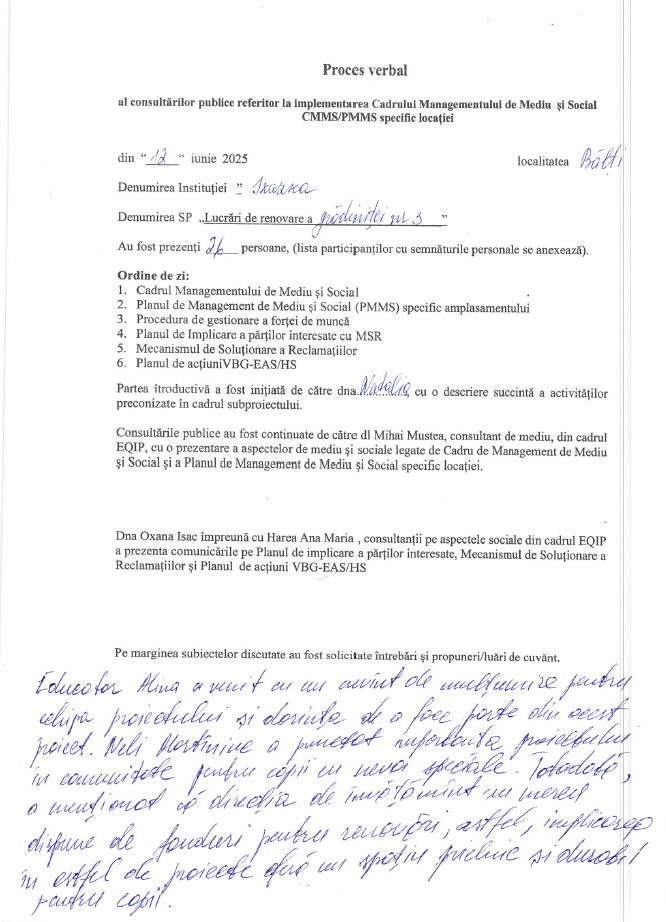 Proces verbal
al consultărilor publice referitor la implementarea Cadrului Managementului de Mediu și Social
CMMS/PMMS specific locației
din “ 12 “ iunie 2025 localitatea Bălți
Denumirea Instituției ”
Denumirea SP „Lucrări de renovare a grădiniței nr 3 ”
Au fost prezenți 26 persoane, (lista participanților cu semnăturile personale se anexează).
Ordine de zi:
1. Cadrul Managementului de Mediu și Social
2. Planul de Management de Mediu și Social (PMMS) specific amplasamentului
3. Procedura de gestionare a forței de muncă
4. Planul de Implicare a părților interesate cu MSR
5. Mecanismul de Soluționare a Reclamațiilor
6. Planul de acțiuniVBG-EAS/HS
Partea îtroductivă a fost inițiată de către dna Natalia, cu o descriere succintă a activităților
preconizate în cadrul subproiectului.
Consultările publice au fost continuate de către dl Mihai Mustea, consultant de mediu, din cadrul
EQIP, cu o prezentare a aspectelor de mediu și sociale legate de Cadru de Management de Mediu
și Social și a Planul de Management de Mediu și Social specific locației.
Dna Oxana Isac împreună cu Harea Ana Maria , consultanții pe aspectele sociale din cadrul EQIP
a prezenta comunicările pe Planul de implicare a părților interesate, Mecanismul de Soluționare a
Reclamațiilor și Planul de acțiuni VBG-EAS/HS
Pe marginea subiectelor discutate au fost solicitate întrebări și propuneri/luări de cuvânt.
Educator Alina a venit cu un cuvint de mulțumire pentru
echipa proiectului și dorința de a face parte din acest
proiect. Neli a punctat importanța proiectului
în comunitate pentru copii cu nevoi speciale. Totodată,
a menționat că direcția de învățămînt nu mereu
dispune de fonduri pentru renovări, astfel, implicarea
în astfel de proiecte oferă un spațiu prielnic și durabil
pentru copii.